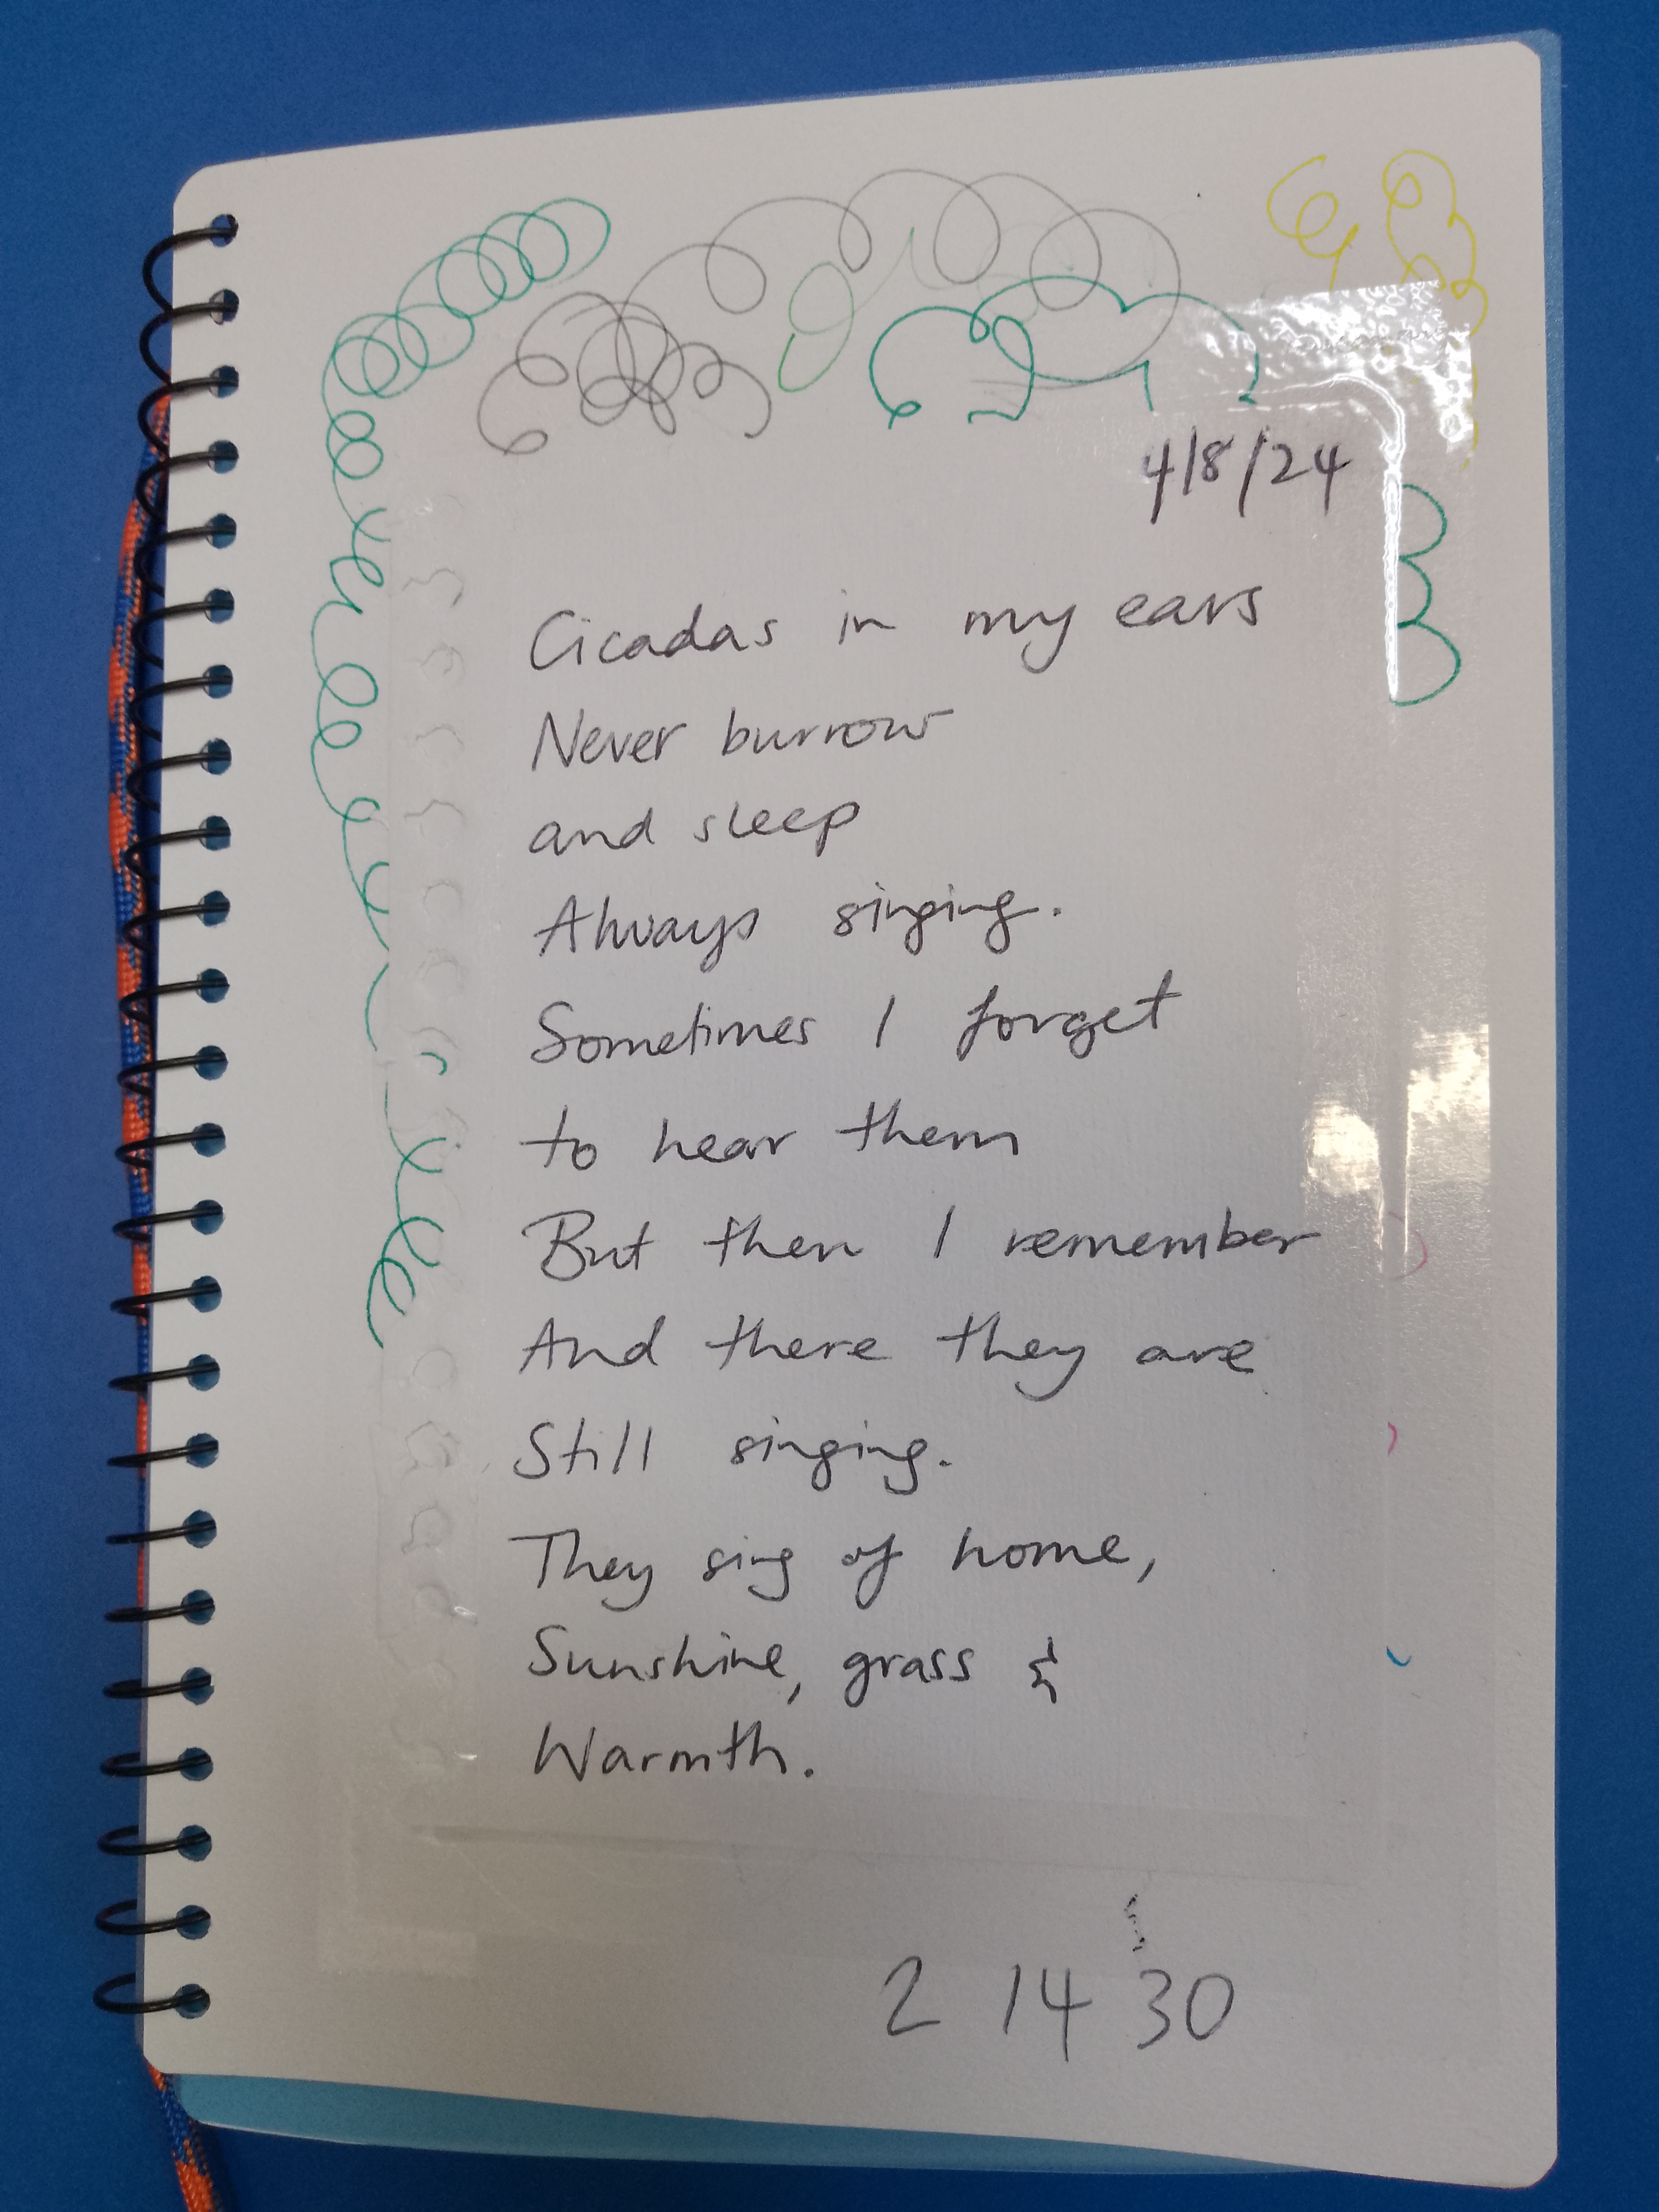 4/8/24
Cicadas in my ears
Never burrow
and sleep
Always singing.
Sometimes I forget
to hear them
But then I remember
And there they are
Still singing.
They sing of home,
Sunshine, grass &
Warmth.
2 14 30